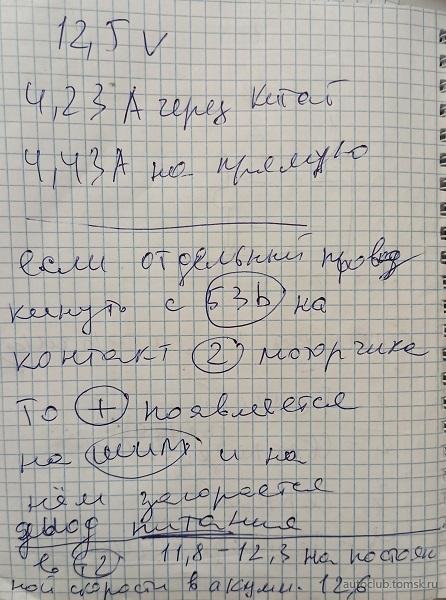 12,5 V
4,23 А через Китай
4,43 А на прямую
если отдельный провод
кинуть с 53b на
контакт 2 моторчика
то + появляется
на шим и на
нём загорается
диод питания
в 12 11,8 - 12,3 на постоян
ной скорости в акуми. 12,6
autoclub.tomsk.ru